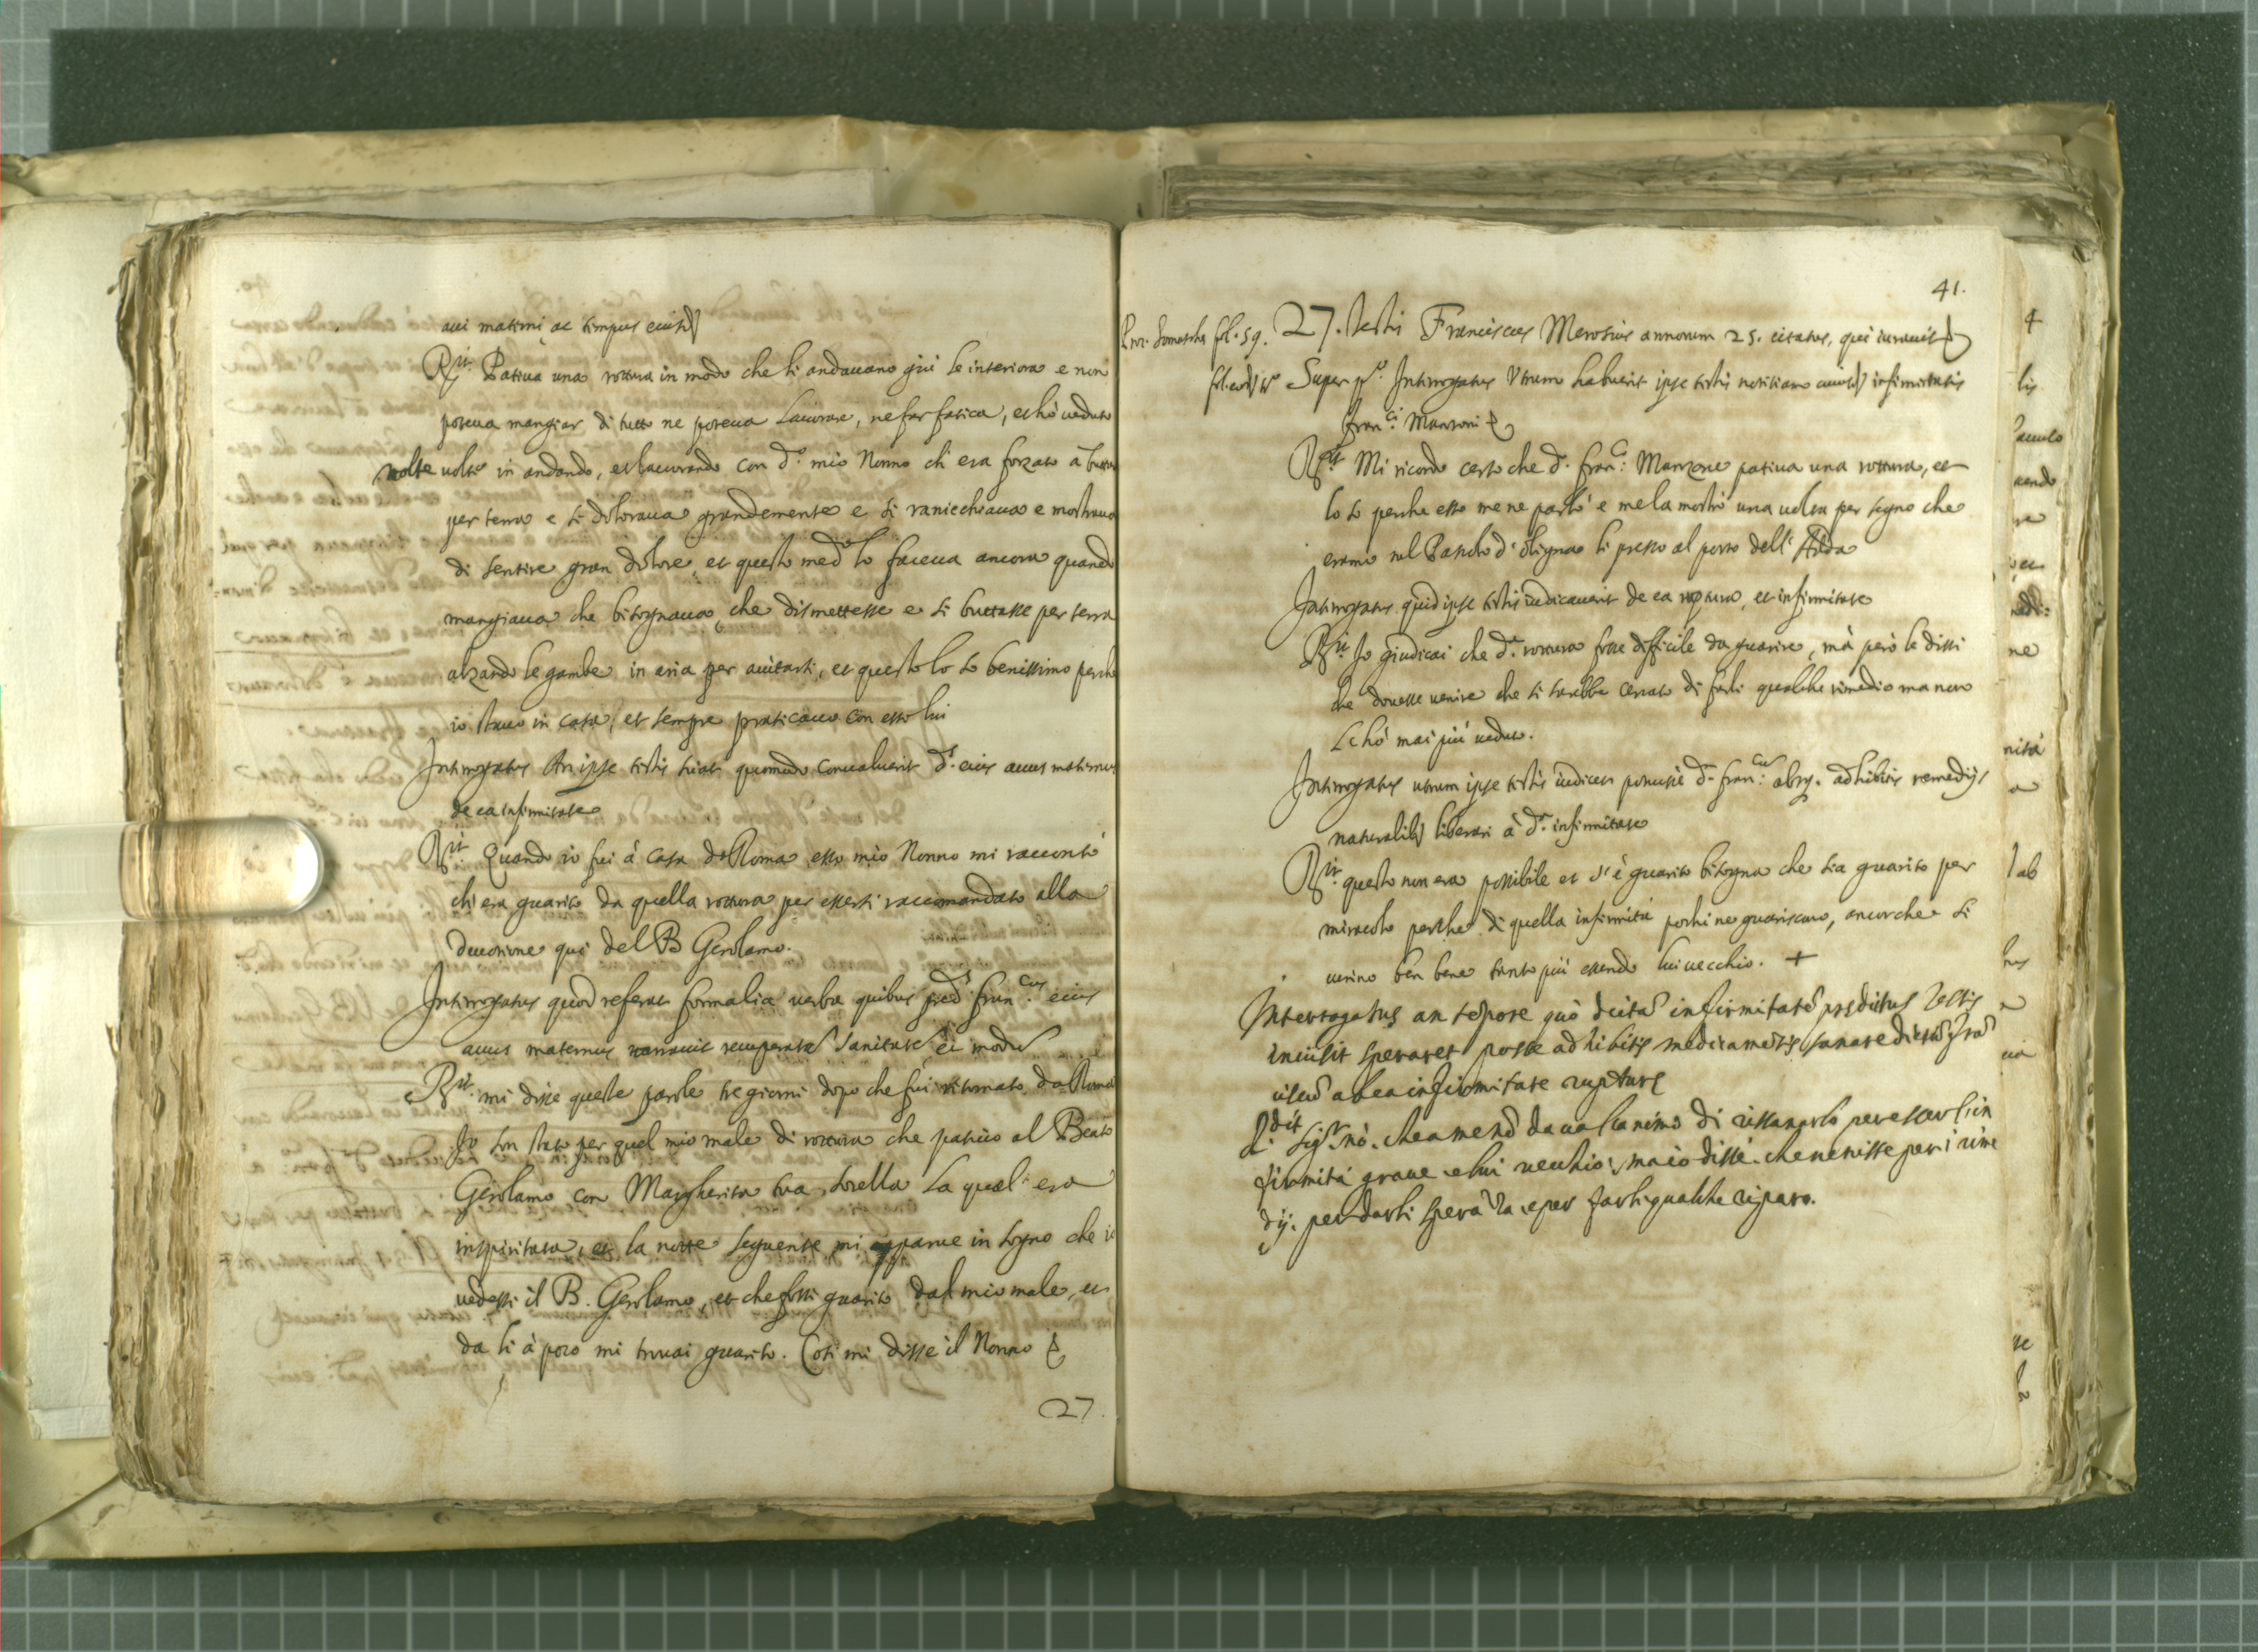 aui materni ac tempus eiusd
Rit. Patiua una rottura in modo che li andauano giù le interiora e non
poteua mangiar di tutto ne poteua Lauorare, ne far fatica, et hò ueduto
molte uolte in andando, et lauorando con d.o mio Nonno ch'era forzato à buttarsi
per terra e si doloraua grandemente e si ranicchiaua e mostraua
di sentire gran dolore, et questo med.o lo faceua ancora quando
mangiaua che bisognaua che dismettesse e si buttasse per terra
alzando le gambe in aria per aiutarsi, et questo lo so benissimo perche
io stauo in casa, et sempre praticauo con esso lui
Interrogatus An ipse testis sciat quomodo conualuerit d.s eius auus maternus
de ea infirmitate
Rit. Quando io fui à casa da Roma esso mio Nonno mi raccontò
ch'era guarito da quella rottura per essersi raccomandato alla
deuotione quì del B Gerolamo.
Interrogatus quod referat formalia uerba quibus pred.s fran.cus eius
auus maternus narrauit recuperatae sanitatis ei modum
Rit. mi disse queste parole tre giorni dopo che fui ritornato da Roma
Io son stato per quel mio male di rottura che patiuo al Beato
Gerolamo con Margherita tua sorella La qual era
inspiritata, et la notte seguente mi apparue in sogno che io
uedessi il B. Gerolamo, et che fossi guarito dal mio male, et
da li à poco mi trouai guarito. Cosi mi disse il Nonno
27.
41.
Proc. Somascha fol. 59. 27. testis Franciscus Merosius annorum 25. citatus, qui iurauit
fol. eod. to Super p.o Interrogatus Vtrum habuerit ipse testis notitiam infirmitatis
Fran.ci Manzoni
Rit. Mi ricordo certo che d.o Fran.co Manzone patiua una rottura, et
lo so perche esso me ne parlò e me la mostrò una uolta per segno che
eramo nel Pascolo d'Olginao li presso al porto dell'Adda
Interrogatus quid ipse testis iudicauerit de ea ruptura, et infirmitate
Rit. Io giudicai che d.a rottura fosse difficile da guarire, mà però le dissi
che douesse uenire che si sarebbe cercato di farli qualche rimedio ma non
L'hò mai più ueduto.
Interrogatus utrum ipse testis iudicet potuisse d.m fran.cum absq. adhibitis remedijs
naturalib. liberari à d.a infirmitate
Rit. questo non era possibile et s'è guarito bisogna che sia guarito per
miracolo perche di quella infirmità pochi ne guariscano, ancorche si
curino ben bene tanto più essendo lui uecchio. +
Interrogatus an tempore quo dictam infirmitatem predictus testis
inuisit speraret posse adhibitis medicamentis sanare dictum Fran
ciscum ab ea infirmitate rupturę
R.dit Sig.r nò. che a me nō daua l'animo di rissanarlo per esser l'in
firmità graue e lui uecchio; ma io dissi che uenisse per i rime
dij. per darli sperāza e per farli qualche riparo.